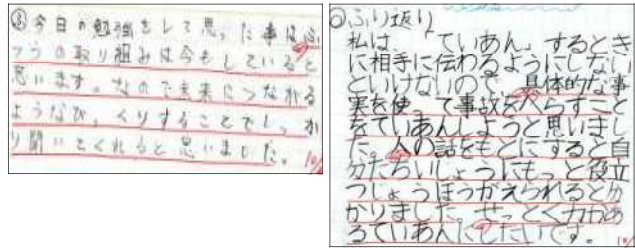 今日の勉強をして思った事はふ
つうの取り組みは今もしていると
思います。なので未来につながる
ようなびっくりすることでしっか
り聞いてくれると思いました。
ふり返り
私は、「ていあん」するとき
に相手に伝わるようにしない
といけないので、具体的な事
実を使って事故をへらすこと
をていあんしようと思いまし
た。人の話をもとにすると自
分たちいじょうにもっと役立
つじょうほうがえられるとわ
かりました。せっとく力があ
るていあんにしたいです。